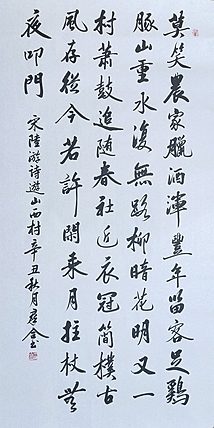 莫笑農家臘酒渾豐年留客足鷄
豚山重水復無路柳暗花明又一
村蕭鼓追隨春社近衣冠簡樸古
風存從今若許閑乘月拄杖無
夜叩門
宋陸游詩遊山西村辛丑秋月